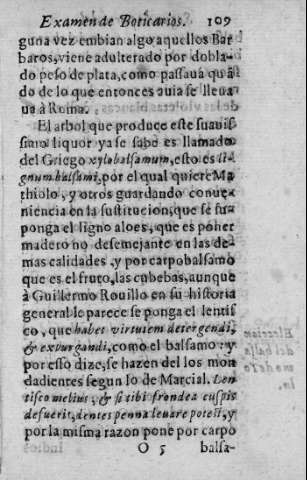 Examen de Boticarios. 109
guna vez embian algo aquellos Bar
baros, viene adulterado por dobla-
do peso de plata, como passaua quã
do de lo que entonces auia se lleua
ua à Roma.
El arbol que produce este suauis-
simo liquor ya se sabe es llamado
del Griego xylobalsamum, esto es li-
gnum balsami, por el qual quiere Ma
thiolo, y otros guardando conue-
niencia en la sustitucion, que se su-
ponga el ligno aloes, que es poner
madero no desemejante en las de-
mas calidades, y por carpobalsamo
que es el fruto, las cubebas, aunque
à Guillermo Rouillo en su historia
general le parece se ponga el lentis
co, que habet virtutem detergendi,
& expurgandi, como el balsamo: y
por esso dize, se hazen del los mon
dadientes segun lo de Marcial. Len-
tiscomelius, & si tibi frondea cuspis
defuerit, dentes penna leuare potest, y
por la misma razon pone por carpo
O 5 balsa-